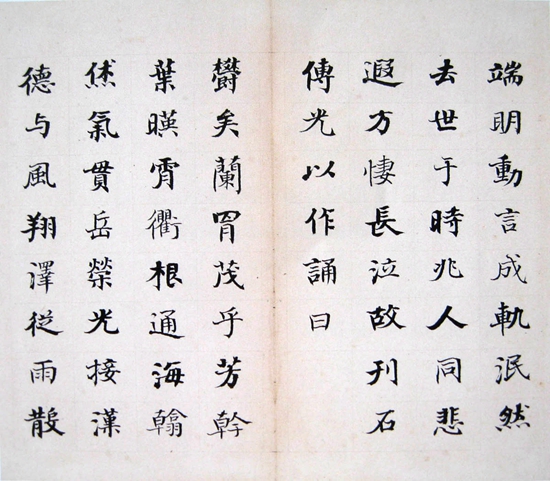 端明動言成軌泯然
去世于時兆人同悲
遐方悽長泣故刊石
傳光以作誦曰
鬱矣蘭胄茂乎芳幹
葉暎霄衢根通海翰
烋氣貫岳榮光接漢
德与風翔澤從雨散